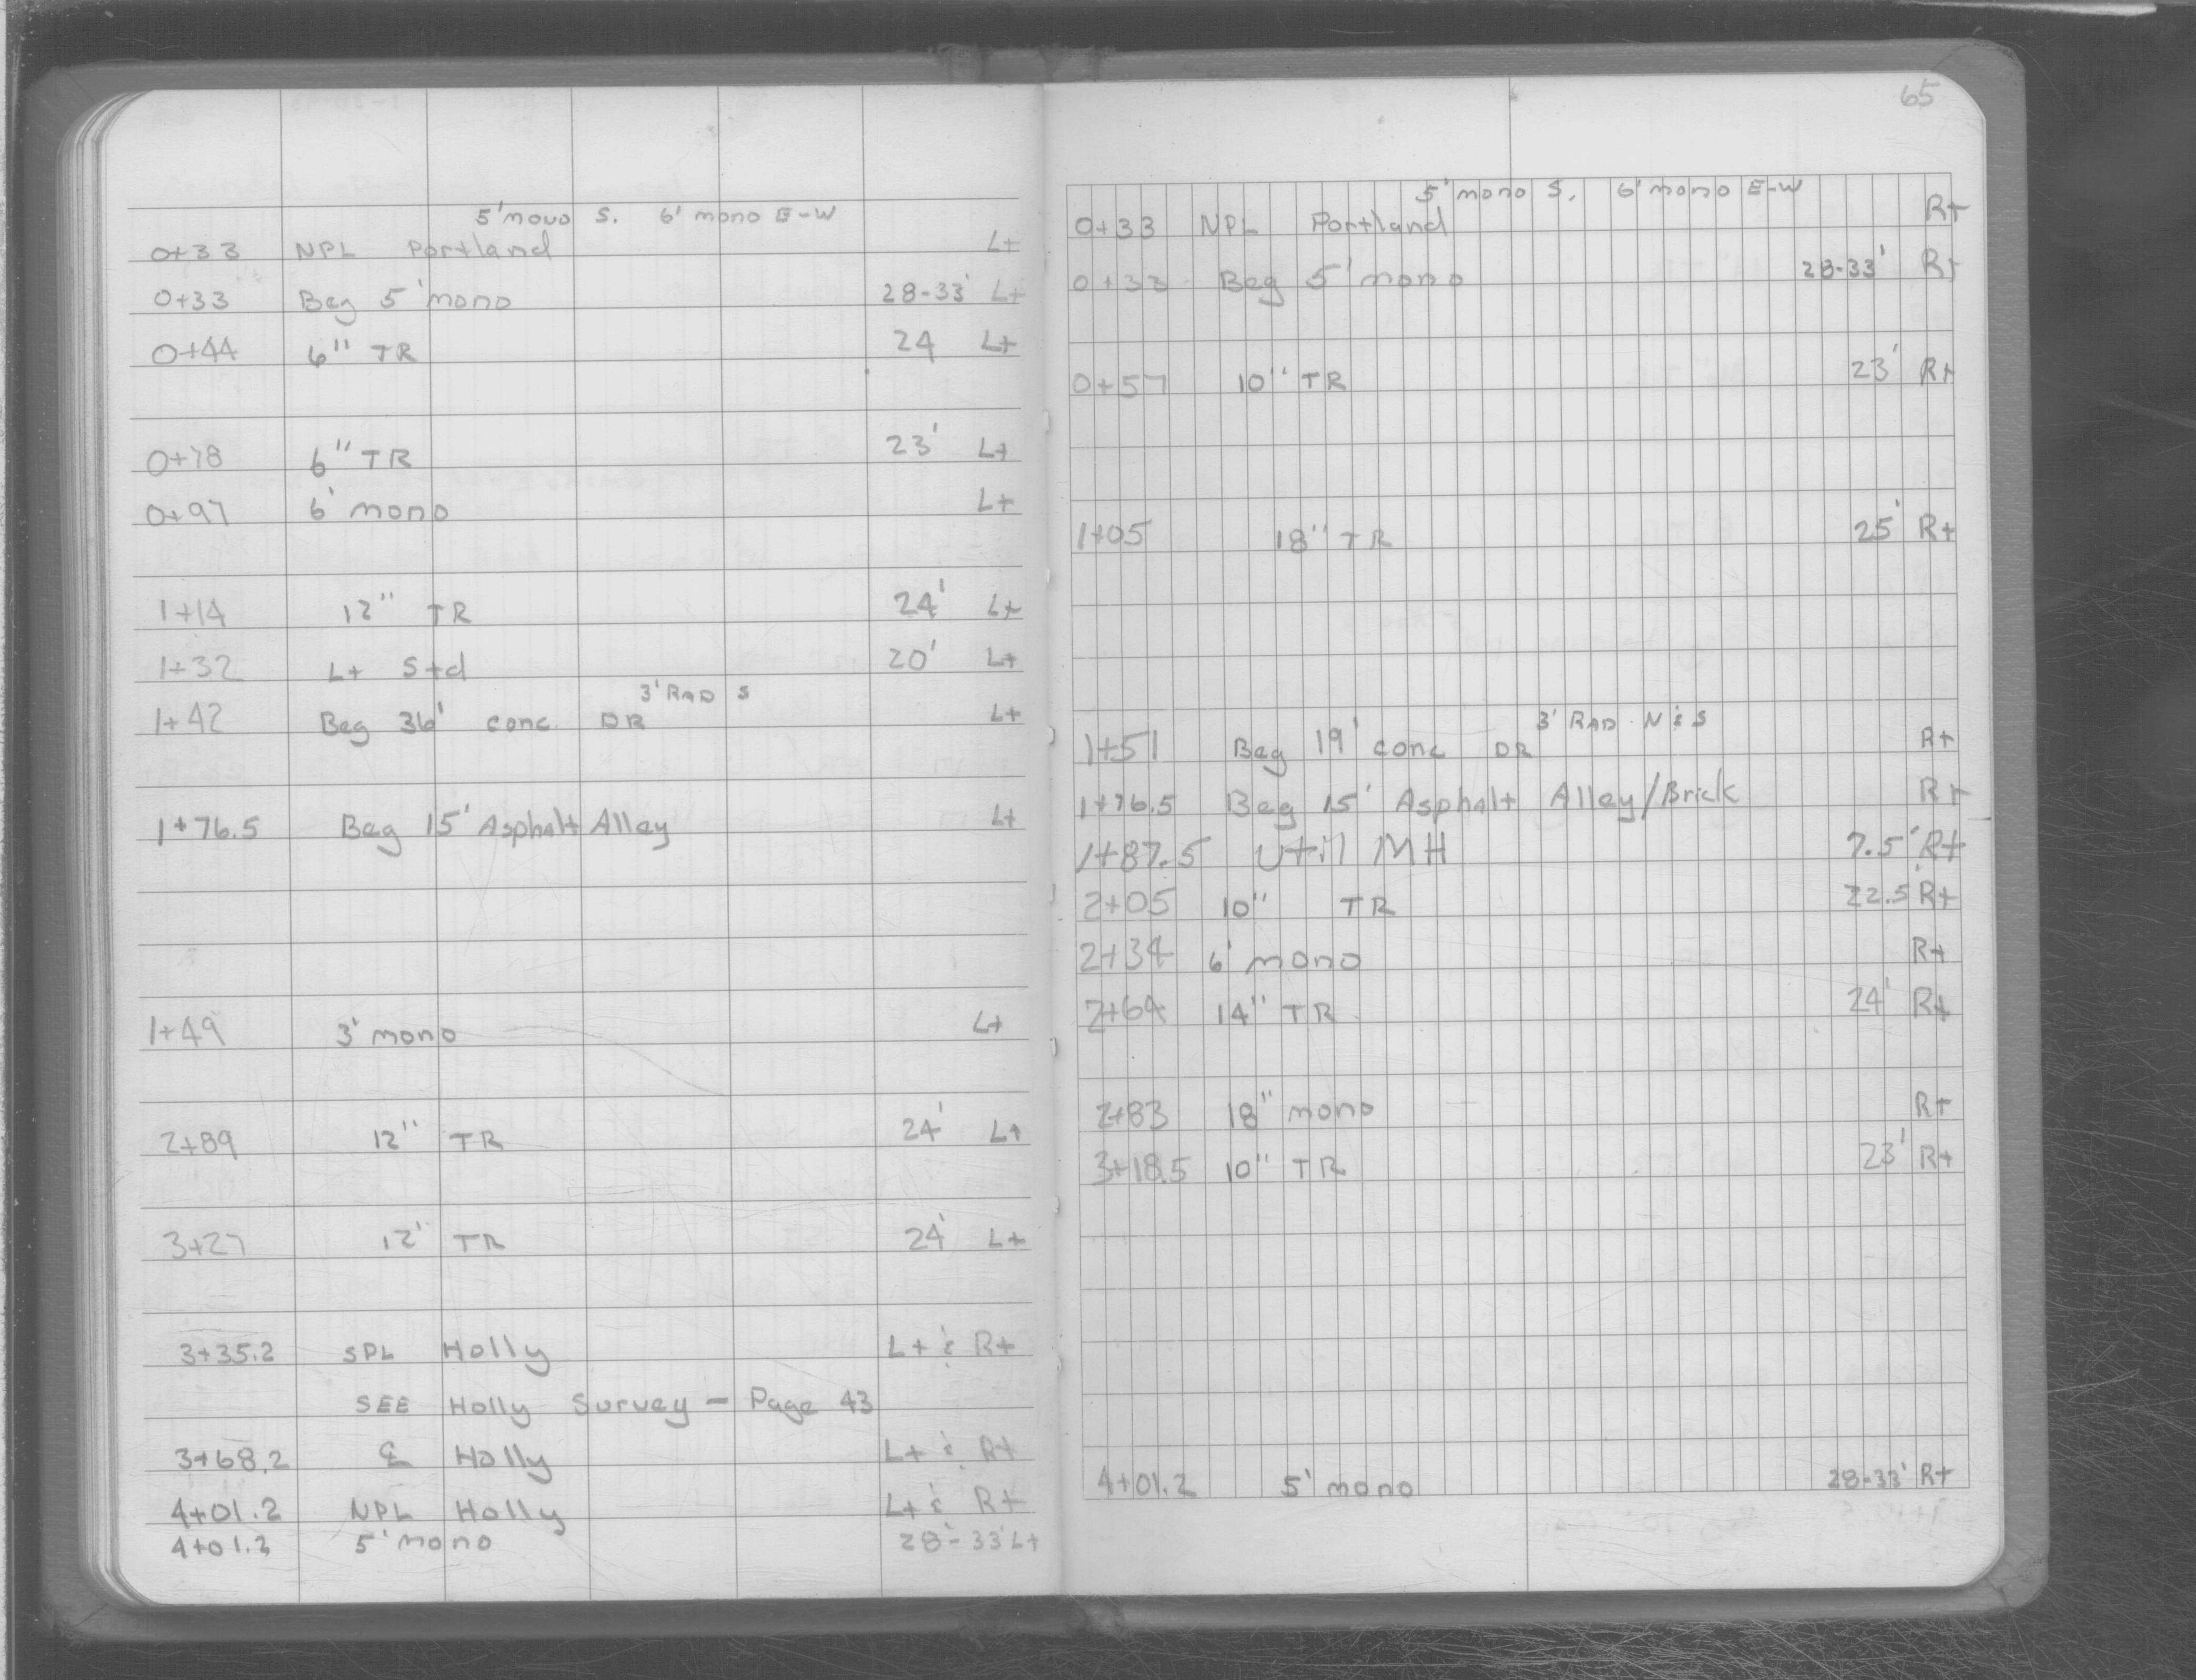 5' mono S. 6' mono E-W
0+33 NPL Portland Lt
0+33 Beg 5' mono 28-33' Lt
0+44 6" TR 24 Lt
0+78 6" TR 23' Lt
0+97 6' mono Lt
1+14 12" TR 24' Lt
1+32 Lt Std 20' Lt
3' RAD S
1+42 Beg 36' conc DR Lt
1+76.5 Beg 15' Asphalt Alley Lt
1+49 3' mono Lt
2+89 12" TR 24' Lt
3+27 12' TR 24' Lt
3+35.2 SPL Holly Lt & Rt
SEE Holly Survey - Page 43
3+68.2 ℄ Holly Lt & Rt
4+01.2 NPL Holly Lt & Rt
4+01.2 5' mono 28'-33' Lt
65
5' mono S. 6' mono E-W
0+33 NPL Portland Rt
0+33 Beg 5' mono 28-33' Rt
0+57 10" TR 23' Rt
1+05 18" TR 25' Rt
3' RAD N & S
1+51 Beg 19' conc DR Rt
1+76.5 Beg 15' Asphalt Alley/Brick Rt
1+87.5 Util MH 7.5' Rt
2+05 10" TR 22.5' Rt
2+34 6' mono Rt
2+64 14" TR 24' Rt
2+83 18" mono Rt
3+18.5 10" TR 23' Rt
4+01.2 5' mono 28-33' Rt